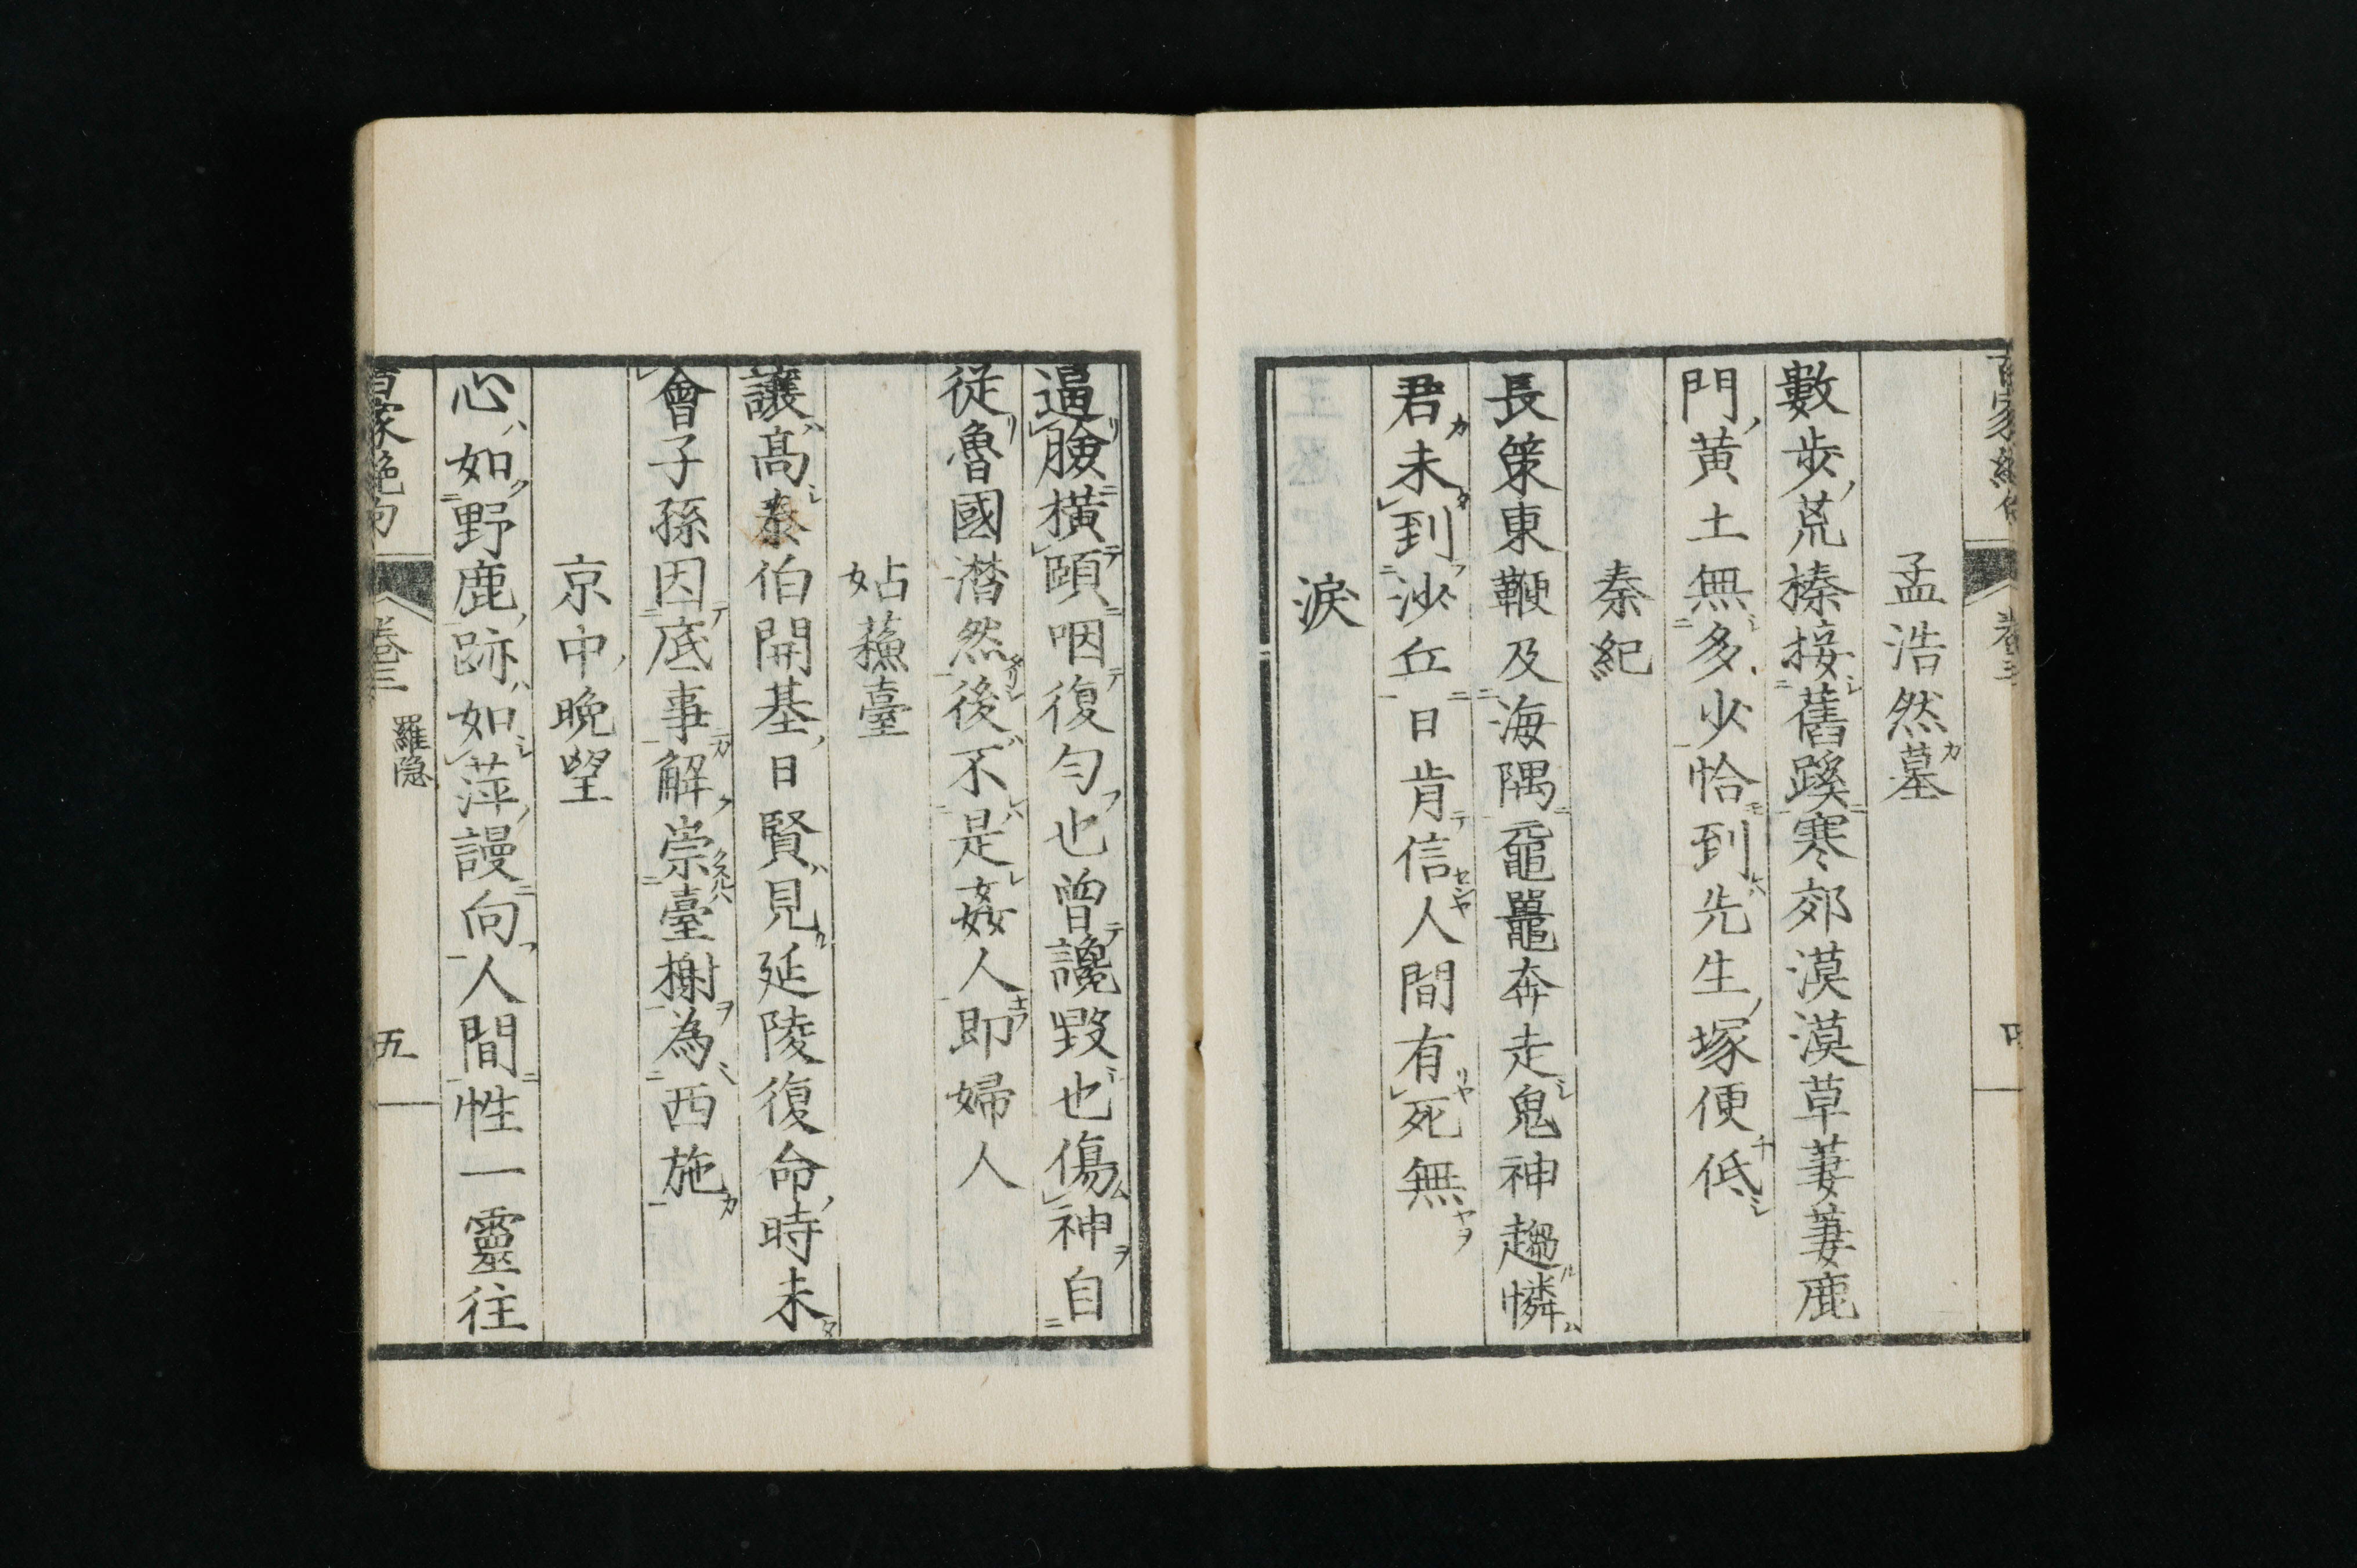 孟浩然墓
數步荒榛接舊蹊寒郊漠漠草萋萋鹿
門黄土無多少恰到先生塚便低
秦紀
長策東鞭及海隅黿鼉奔走鬼神趨憐
君未到沙丘日肯信人間有死無
淚
逼臉橫頤咽復匀也曾讒毀也傷神自
従魯國潜然後不是姦人即婦人
姑蘓臺
讓高泰伯開基日賢見延陵復命時未
會子孫因底事解崇臺榭為西施
京中晩望
心如野鹿跡如萍謾向人間性一靈往
百家絶句 卷三 羅隠 五